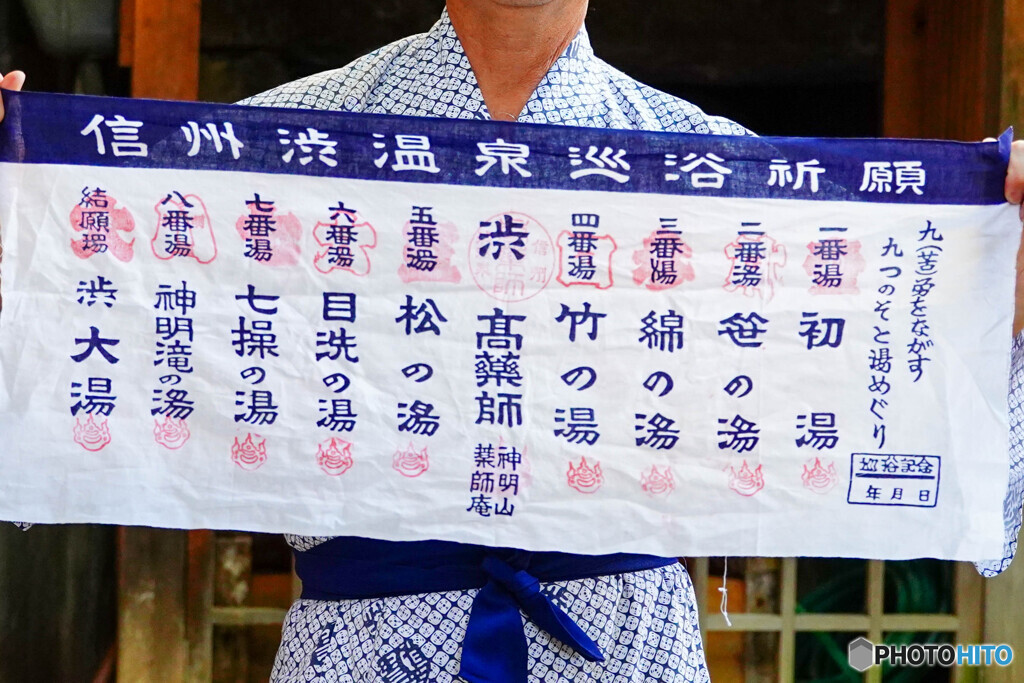 信州渋温泉巡浴祈願
九(苦)労をながす
九つのそと湯めぐり
巡浴記念
年月日
一番湯
初湯
二番湯
笹の湯
三番湯
綿の湯
四番湯
竹の湯
渋
高薬師
神明山
薬師庵
五番湯
松の湯
六番湯
目洗の湯
七番湯
七操の湯
八番湯
神明滝の湯
結願湯
渋大湯
PHOTOHITO